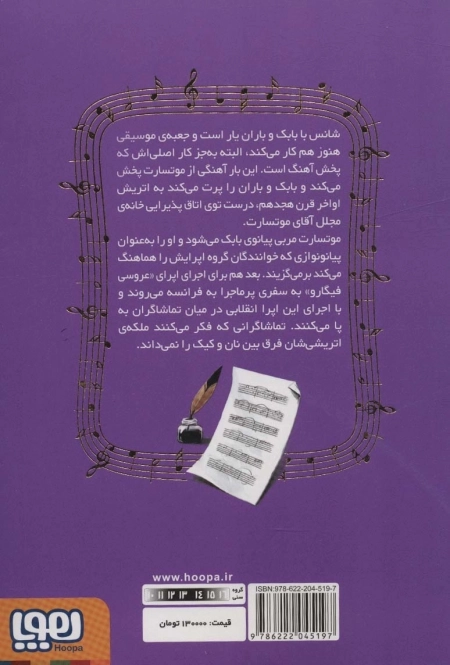 شانس با بابک و باران یار است و جعبه‌ی موسیقی
هنوز هم کار می‌کند، البته به‌جز کار اصلی‌اش که
پخش آهنگ است. این بار آهنگی از موتسارت پخش
می‌کند و بابک و باران را پرت می‌کند به اتریش
اواخر قرن هجدهم، درست توی اتاق پذیرایی خانه‌ی
مجلل آقای موتسارت.
موتسارت مربی پیانوی بابک می‌شود و او را به‌عنوان
پیانونوازی که خوانندگان گروه اپرایش را هماهنگ
می‌کند برمی‌گزیند. بعد هم برای اجرای اپرای «عروسی
فیگارو» به سفری پرماجرا به فرانسه می‌روند و
با اجرای این اپرا انقلابی در میان تماشاگران به
پا می‌کنند. تماشاگرانی که فکر می‌کنند ملکه‌ی
اتریشی‌شان فرق بین نان و کیک را نمی‌داند.
www.hoopa.ir
گروه سنی
۱۰ ۱۱ ۱۲ ۱۳ ۱۴ ۱۵ ۱۶
قیمت: ۱۳۰۰۰۰ تومان
ISBN: 978-622-204-519-7
9 786222 045197
هوپا
Hoopa